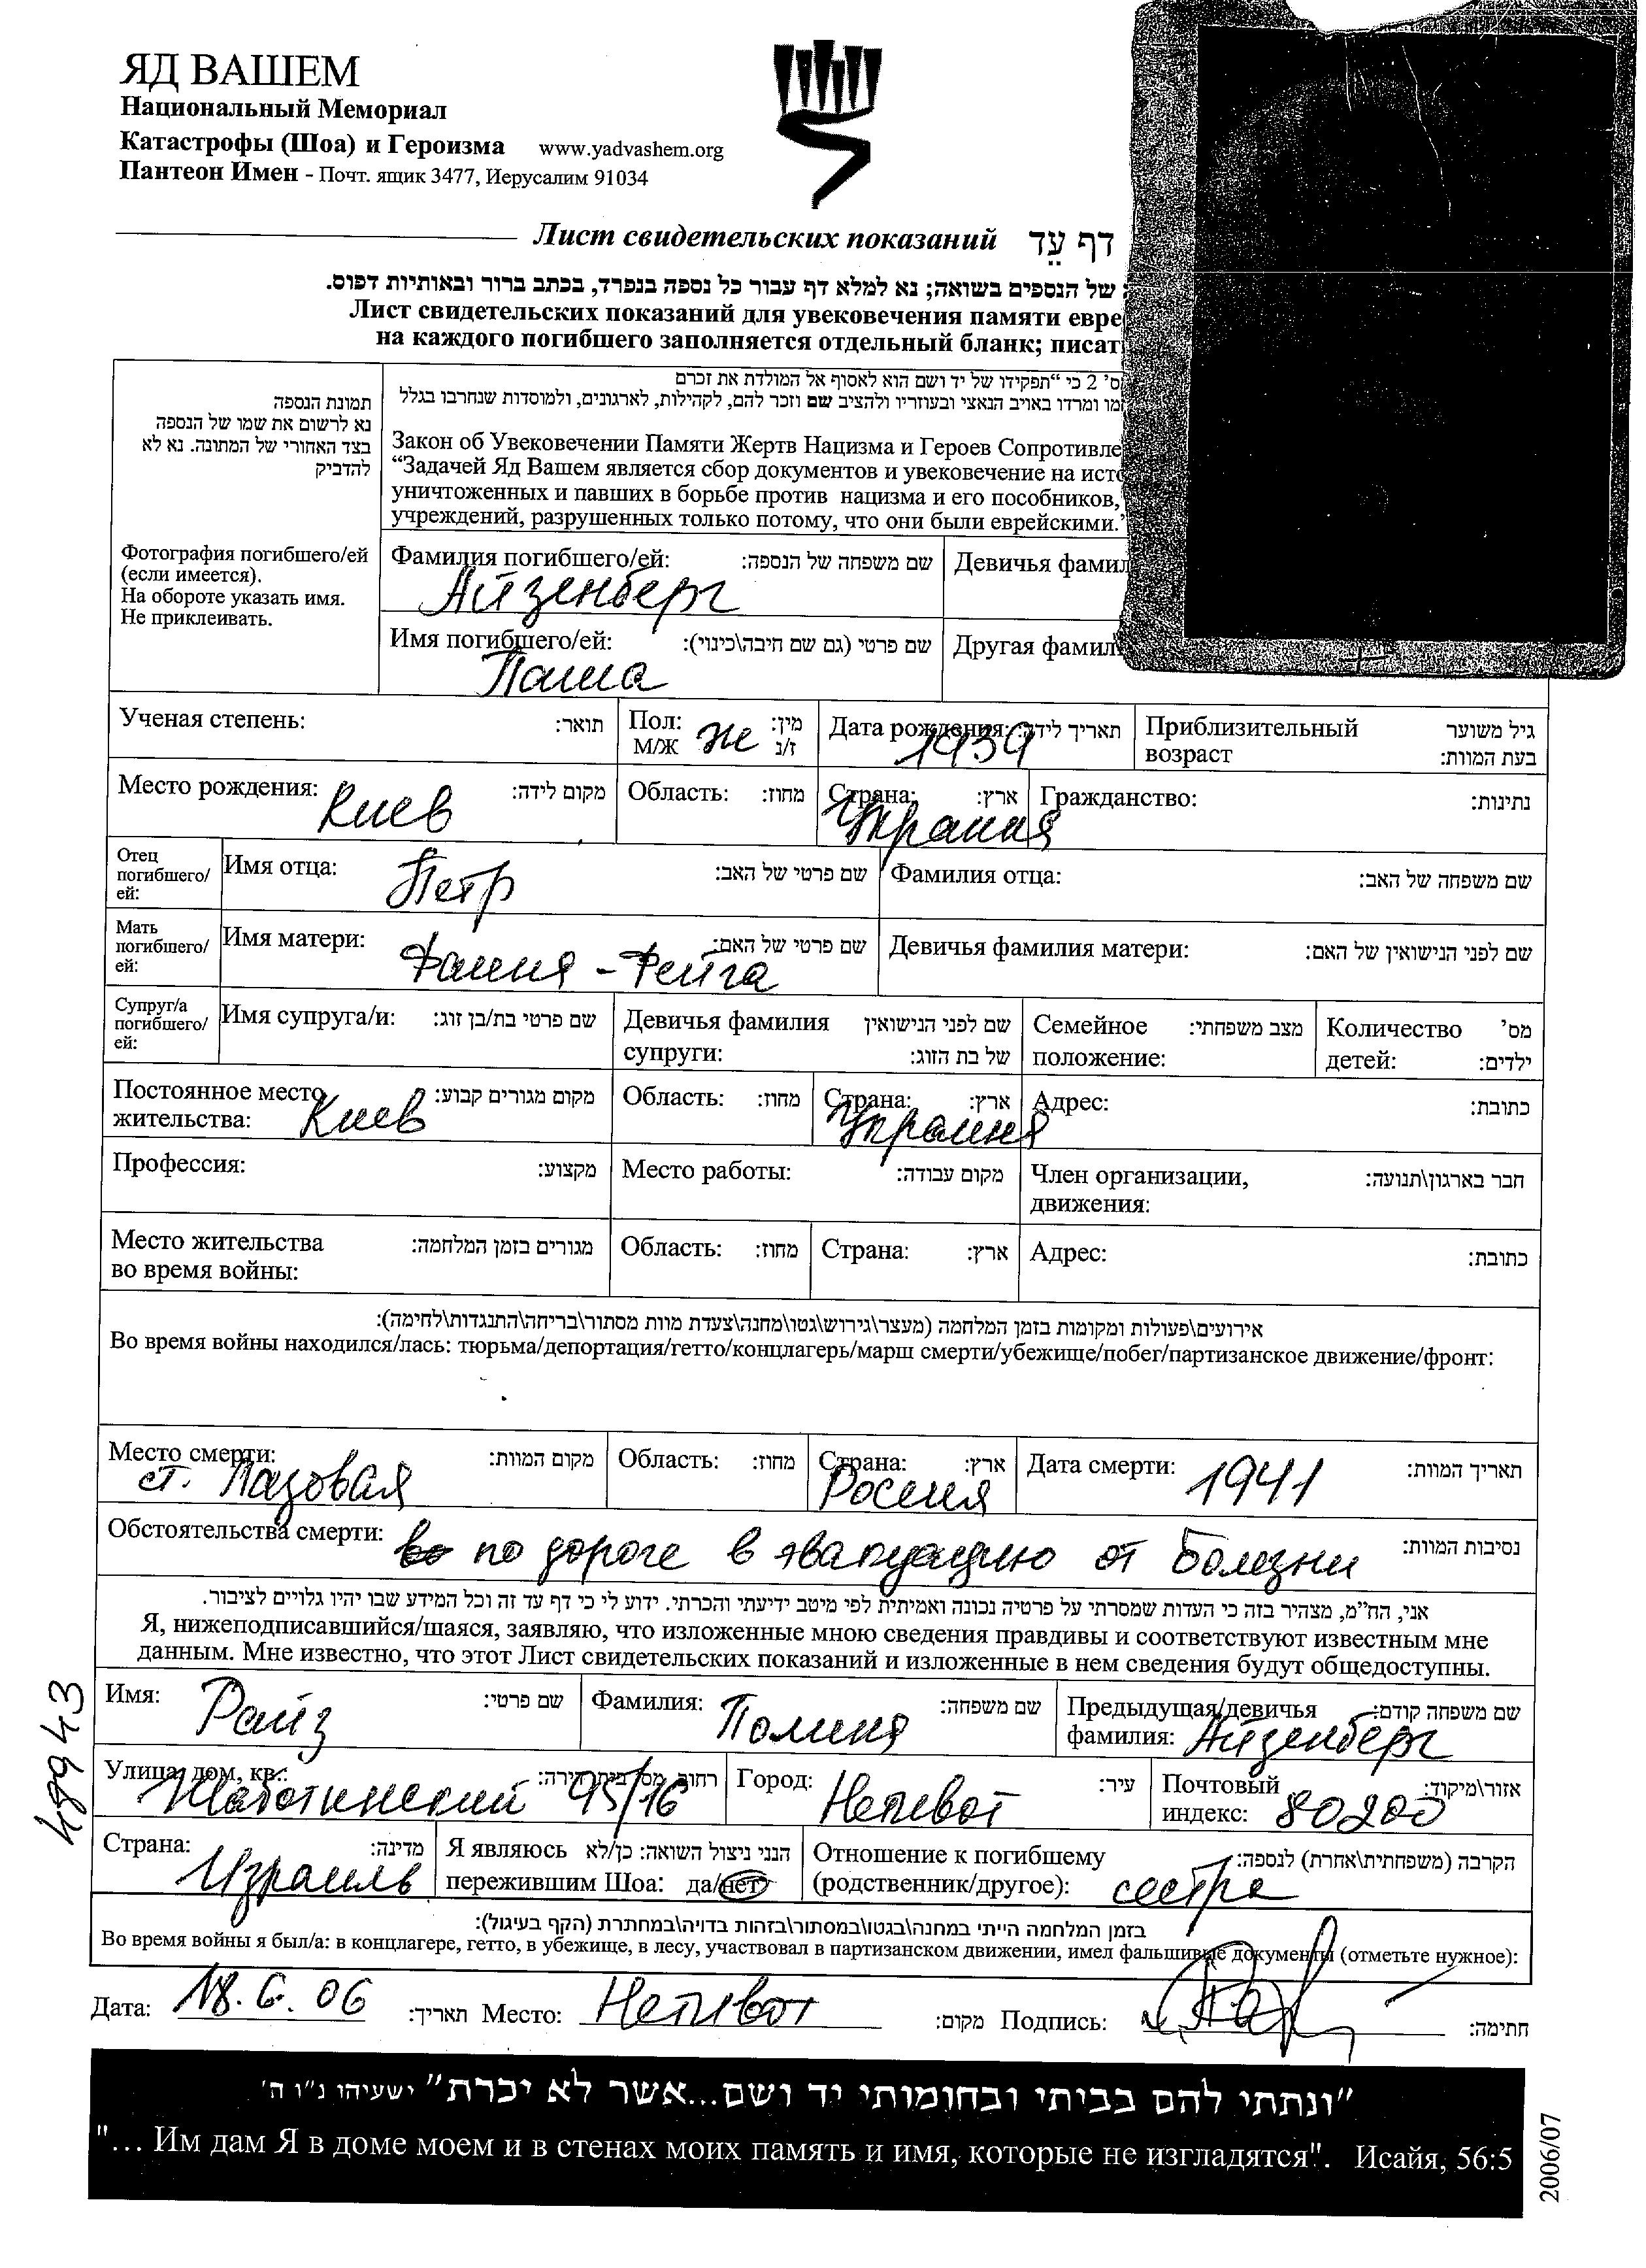 ЯД ВАШЕМ
Национальный Мемориал
Катастрофы (Шоа) и Героизма www.yadvashem.org
Пантеон Имен - Почт. ящик 3477, Иерусалим 91034
Лист свидетельских показаний דף עֵד
של הנספים בשואה; נא למלא דף עבור כל נספה בנפרד, בכתב ברור ובאותיות דפוס.
Лист свидетельских показаний для увековечения памяти евре
на каждого погибшего заполняется отдельный бланк; писат
תמונת הנספה
נא לרשום את שמו של הנספה
בצד האחורי של המתונה. נא לא
להדביק
מס' 2 כי “תפקידו של יד ושם הוא לאסוף אל המולדת את זכרם
ומרדו באויב הנאצי ובעוזריו ולהציב שם וזכר להם, לקהילות, לארגונים, ולמוסדות שנחרבו בגלל
Закон об Увековечении Памяти Жертв Нацизма и Героев Сопротивле
“Задачей Яд Вашем является сбор документов и увековечение на исто
уничтоженных и павших в борьбе против нацизма и его пособников,
учреждений, разрушенных только потому, что они были еврейскими.”
Фотография погибшего/ей
(если имеется).
На обороте указать имя.
Не приклеивать.
Фамилия погибшего/ей: שם משפחה של הנספה: Девичья фамил
Айзенберг
Имя погибшего/ей: שם פרטי (גם שם חיבה\כינוי): Другая фамил
Паша
Ученая степень: תואר: Пол: М/Ж Же מין: ז/נ Дата рождения: תאריך לידה: 1939 Приблизительный возраст גיל משוער בעת המוות:
Место рождения: Киев מקום לידה: Область: מחוז: Страна: ארץ: Украина Гражданство: נתינות:
Отец погибшего/ей: Имя отца: Петр שם פרטי של האב: Фамилия отца: שם משפחה של האב:
Мать погибшего/ей: Имя матери: Фаиня - Фейга שם פרטי של האם: Девичья фамилия матери: שם לפני הנישואין של האם:
Супруг/а погибшего/ей: Имя супруга/и: שם פרטי בת/בן זוג: Девичья фамилия супруги: שם לפני הנישואין של בת הזוג: Семейное положение: מצב משפחתי: Количество детей: מס' ילדים:
Постоянное место жительства: Киев מקום מגורים קבוע: Область: מחוז: Страна: ארץ: Украиня Адрес: כתובת:
Профессия: מקצוע: Место работы: מקום עבודה: Член организации, движения: חבר בארגון\תנועה:
Место жительства во время войны: מגורים בזמן המלחמה: Область: מחוז: Страна: ארץ: Адрес: כתובת:
אירועים\פעולות ומקומות בזמן המלחמה (מעצר\גירוש\גטו\מחנה\צעדת מוות מסתור\בריחה\התנגדות\לחימה):
Во время войны находился/лась: тюрьма/депортация/гетто/концлагерь/марш смерти/убежище/побег/партизанское движение/фронт:
Место смерти: ст. Лазовая מקום המוות: Область: מחוז: Страна: ארץ: Россия Дата смерти: 1941 תאריך המוות:
Обстоятельства смерти: по дороге в эвапуацию от Болезни נסיבות המוות:
אני, הח”מ, מצהיר בזה כי העדות שמסרתי על פרטיה נכונה ואמיתית לפי מיטב ידיעתי והכרתי. ידוע לי כי דף עד זה וכל המידע שבו יהיו גלויים לציבור.
Я, нижеподписавшийся/шаяся, заявляю, что изложенные мною сведения правдивы и соответствуют известным мне
данным. Мне известно, что этот Лист свидетельских показаний и изложенные в нем сведения будут общедоступны.
Имя: Райз שם פרטי: Фамилия: Полиня שם משפחה: Предыдущая/девичья фамилия: Айзенберг שם משפחה קודם:
Улица, дом, кв.: Жаботинский 95/16 רחוב, מס' בית, דירה: Город: Непевот עיר: Почтовый индекс: 80200 אזור\מיקוד:
Страна: Израиль מדינה: Я являюсь пережившим Шоа: да/нет הנני ניצול השואה: כן/לא Отношение к погибшему (родственник/другое): сестра הקרבה (משפחתית\אחרת) לנספה:
בזמן המלחמה הייתי במחנה\בגטו\במסתור\בזהות בדויה\במחתרת (הקף בעיגול):
Во время войны я был/а: в концлагере, гетто, в убежище, в лесу, участвовал в партизанском движении, имел фальшивые документы (отметьте нужное):
Дата: 18.6.06 תאריך: Место: Непевот מקום: Подпись: חתימה:
“ונתתי להם בביתי ובחומותי יד ושם...אשר לא יכרת” ישעיהו נ”ו ה'
"... Им дам Я в доме моем и в стенах моих память и имя, которые не изгладятся". Исайя, 56:5
48943
2006/07